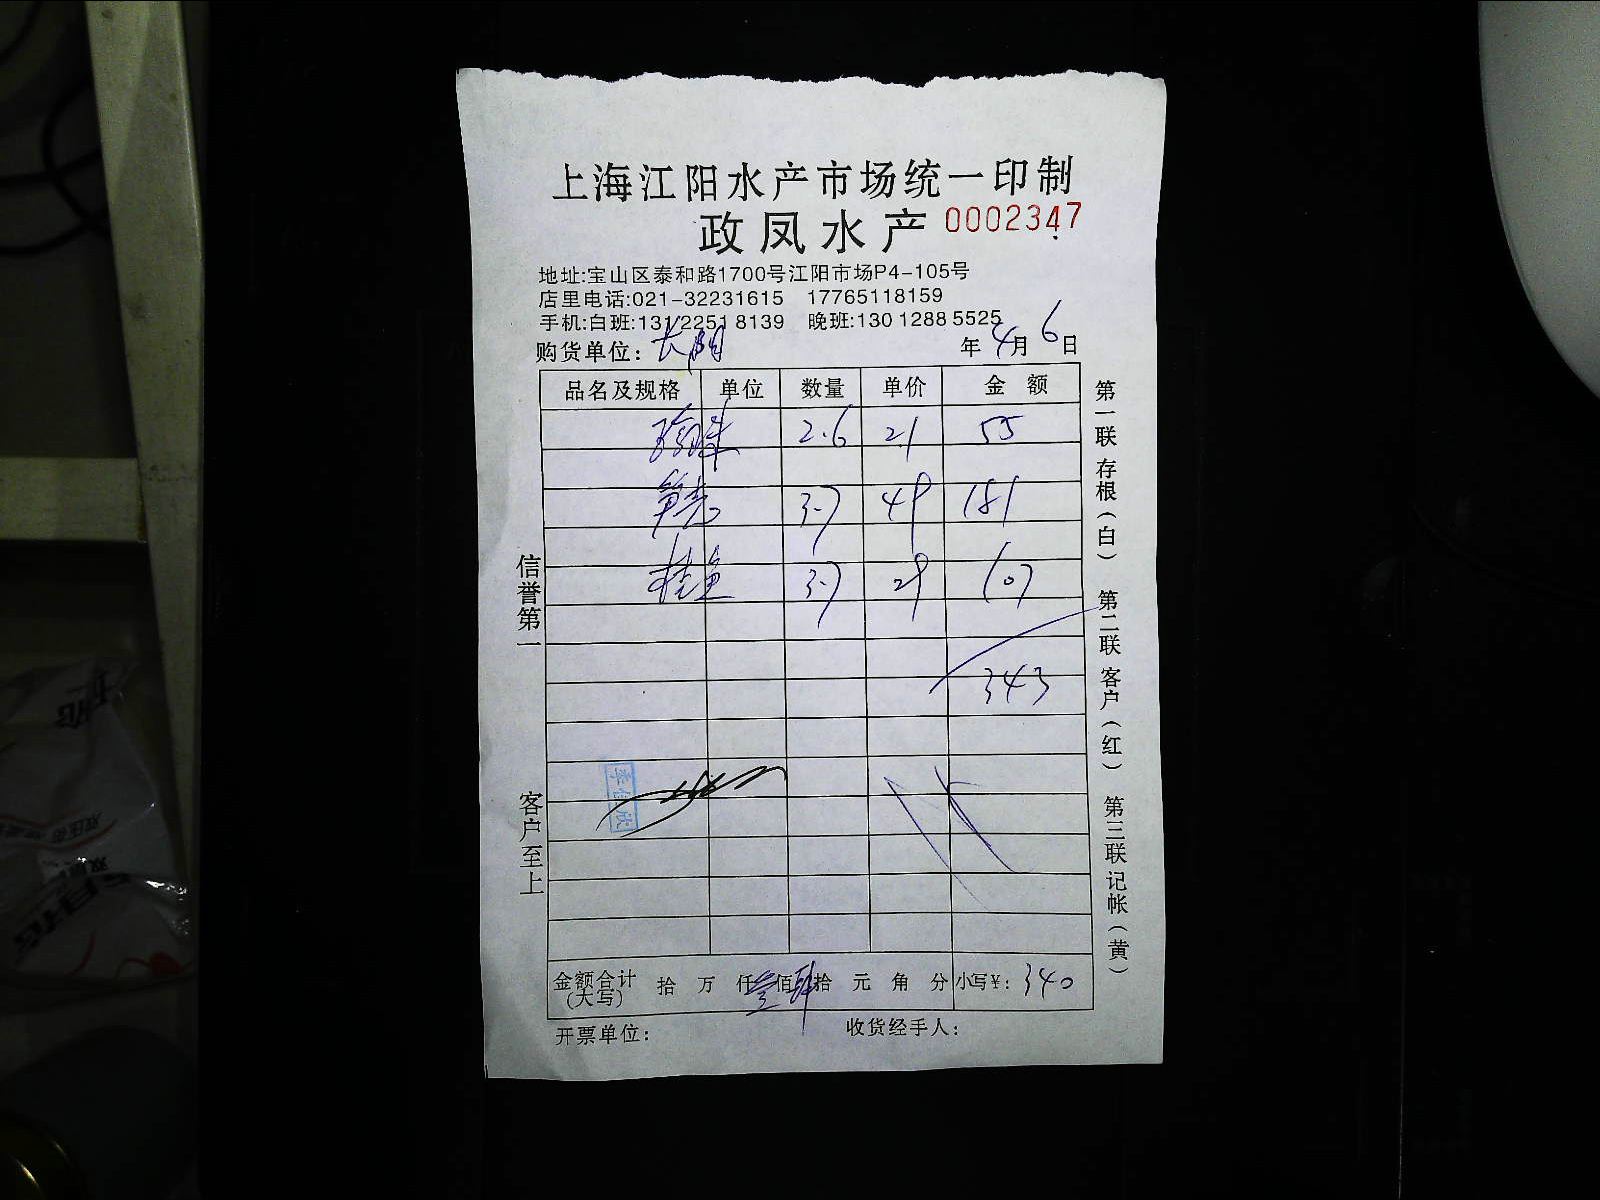 上海江阳水产市场统一印制
政凤水产 0002347
地址:宝山区泰和路1700号江阳市场P4-105号
店里电话:021-32231615 17765118159
手机:白班:131 2251 8139 晚班:130 1288 5525
购货单位: 长阳 年 4月 6日
品名及规格 单位 数量 单价 金额
2.6 21 55
3.7 49 181
桂鱼 3.7 29 107
343
李信欣
金额合计(大写) 拾 万 仟 叁佰 肆拾 元 角 分 小写¥: 340
开票单位: 收货经手人:
信誉第一
客户至上
第一联 存根(白) 第二联 客户(红) 第三联 记帐(黄)